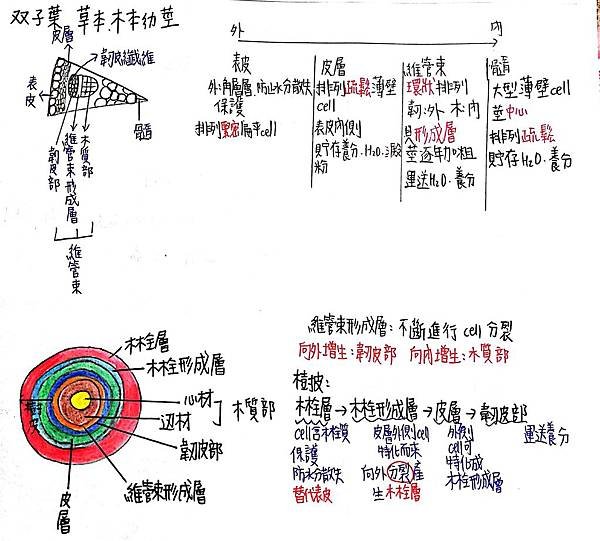 双子葉 草本.木本幼莖
外 內
皮層
韌皮纖維
表皮
髓
韌皮部
維管束形成層
木質部
維管束
表皮
外:角質層,防止水分散失
保護
排列緊密扁平cell
皮層
排列疏鬆薄壁
cell
表皮內側
貯存養分.H₂O.澱
粉
維管束
環狀排列
韌:外 木:內
具形成層
莖逐年加粗
運送H₂O.養分
髓
大型薄壁cell
莖中心
排列疏鬆
貯存H₂O.養分
維管束形成層:不斷進行cell分裂
向外增生:韌皮部 向內增生:木質部
木栓層
木栓形成層
心材
边材
木質部
韌皮部
維管束形成層
皮層
樹皮
樹皮:
木栓層→木栓形成層→皮層→韌皮部
cell含木栓質
保護
防水分散失
替代表皮
皮層外側cell
特化而來
向外分裂產
生木栓層
外側
cell可
特化成
木栓形成層
運送養分